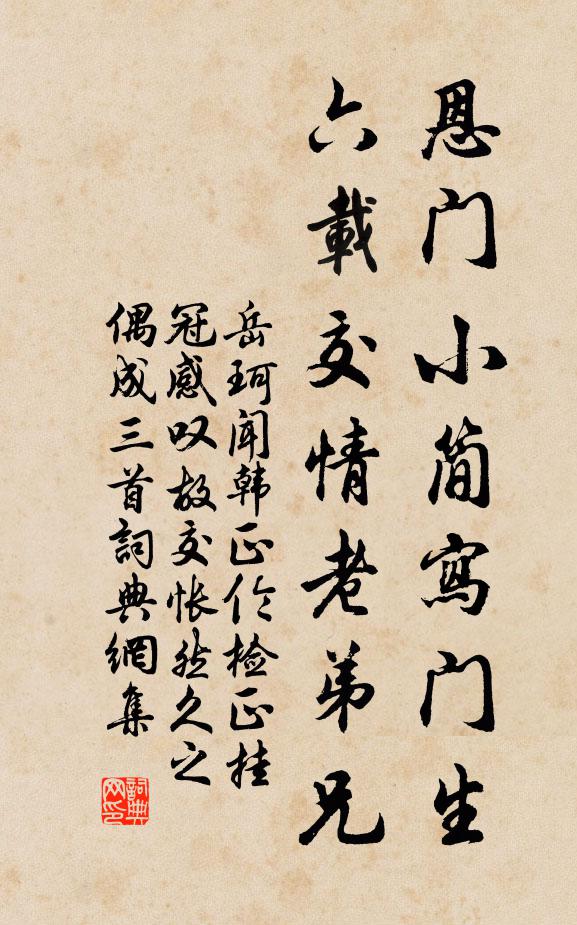 恩门小简寫门生
六載交情老弟兄
岳珂闻韩正伦检正挂
冠感叹故交怅然久之
偶成三首詞典網集
詞典网印